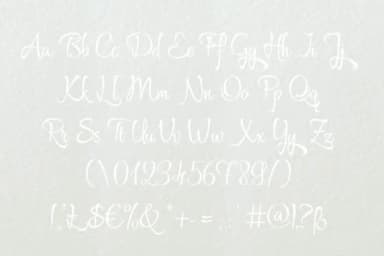 Aa Bb Cc Dd Ee Ff Gg Hh Ii Jj
Kk Ll Mm Nn Oo Pp Qq
Rr Ss Tt Uu Vv Ww Xx Yy Zz
(\0123456789/)